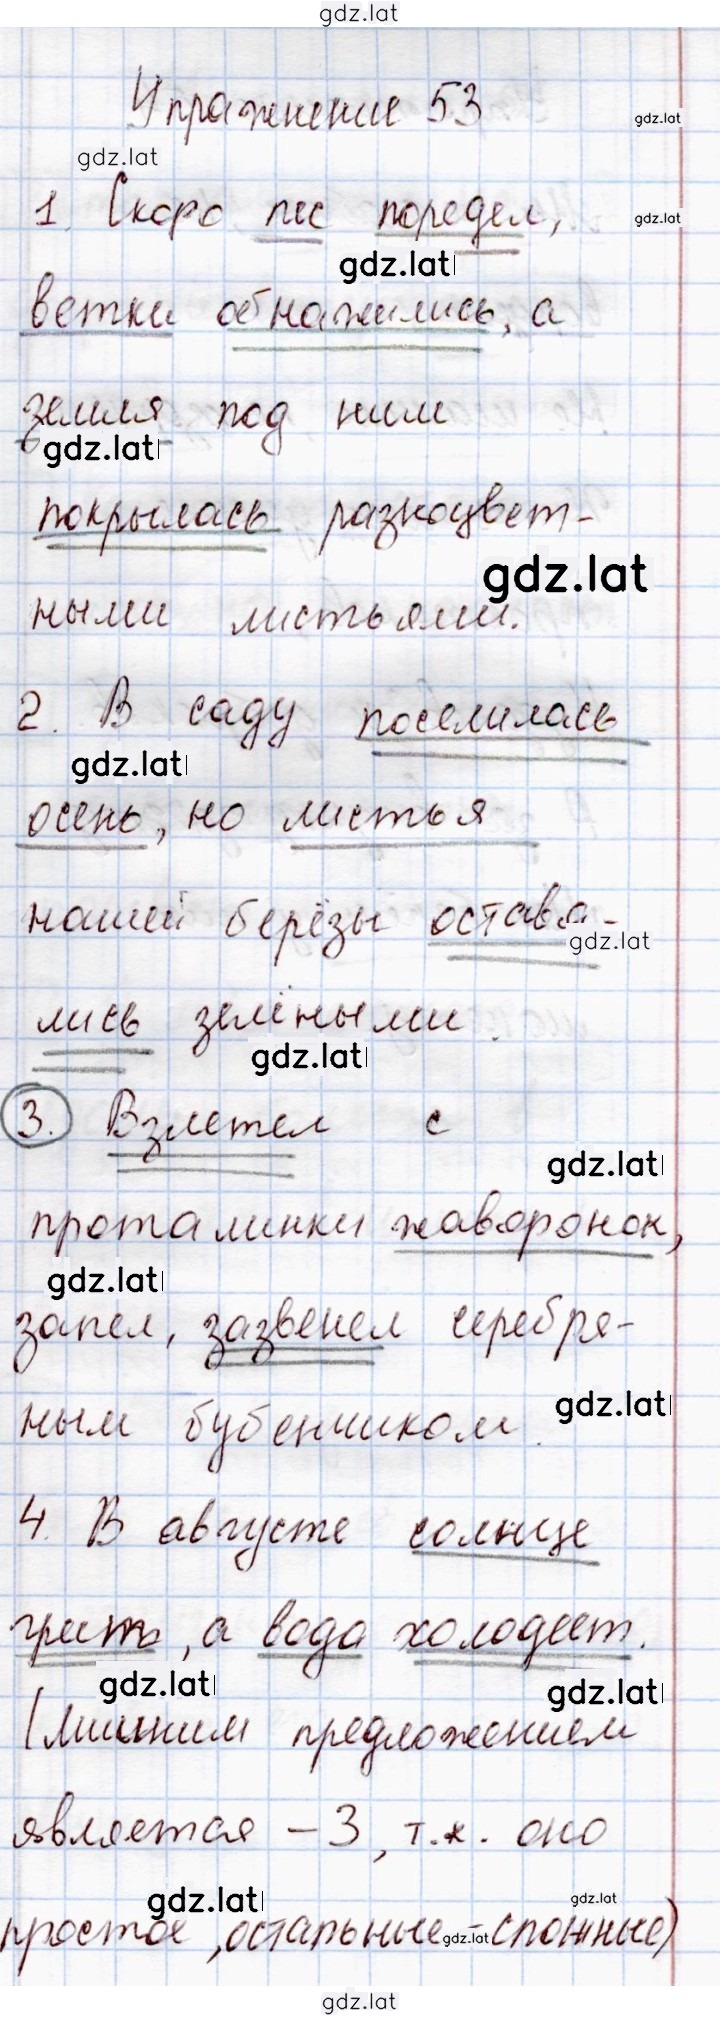 gdz.lat
Упражнение 53
gdz.lat
gdz.lat
1. Скоро лес поредел,
gdz.lat
gdz.lat
ветки обнажились, а
земля под ним
gdz.lat
покрылась разноцвет-
gdz.lat
ными листьями.
2. В саду поселилась
gdz.lat
осень, но листья
нашей берёзы остава-
gdz.lat
лись зелёными.
gdz.lat
3. Взлетел с
gdz.lat
проталинки жаворонок,
gdz.lat
запел, зазвенел серебря-
gdz.lat
ным бубенчиком.
4. В августе солнце
греть, а вода холодеет.
gdz.lat
gdz.lat
(лишним предложением
является – 3, т.к. оно
gdz.lat
gdz.lat
простое, остальные – сложные)
gdz.lat
gdz.lat